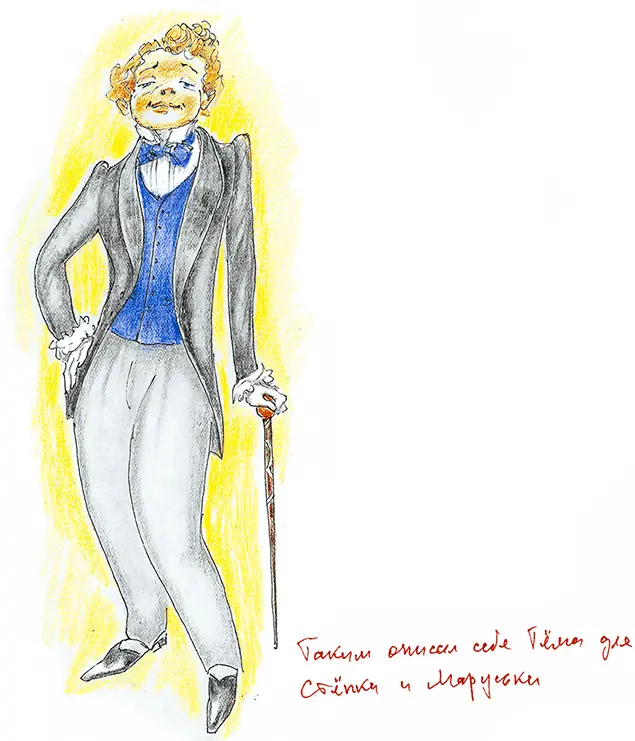 Таким описал себе Тёма для
Стёпки и Маруськи